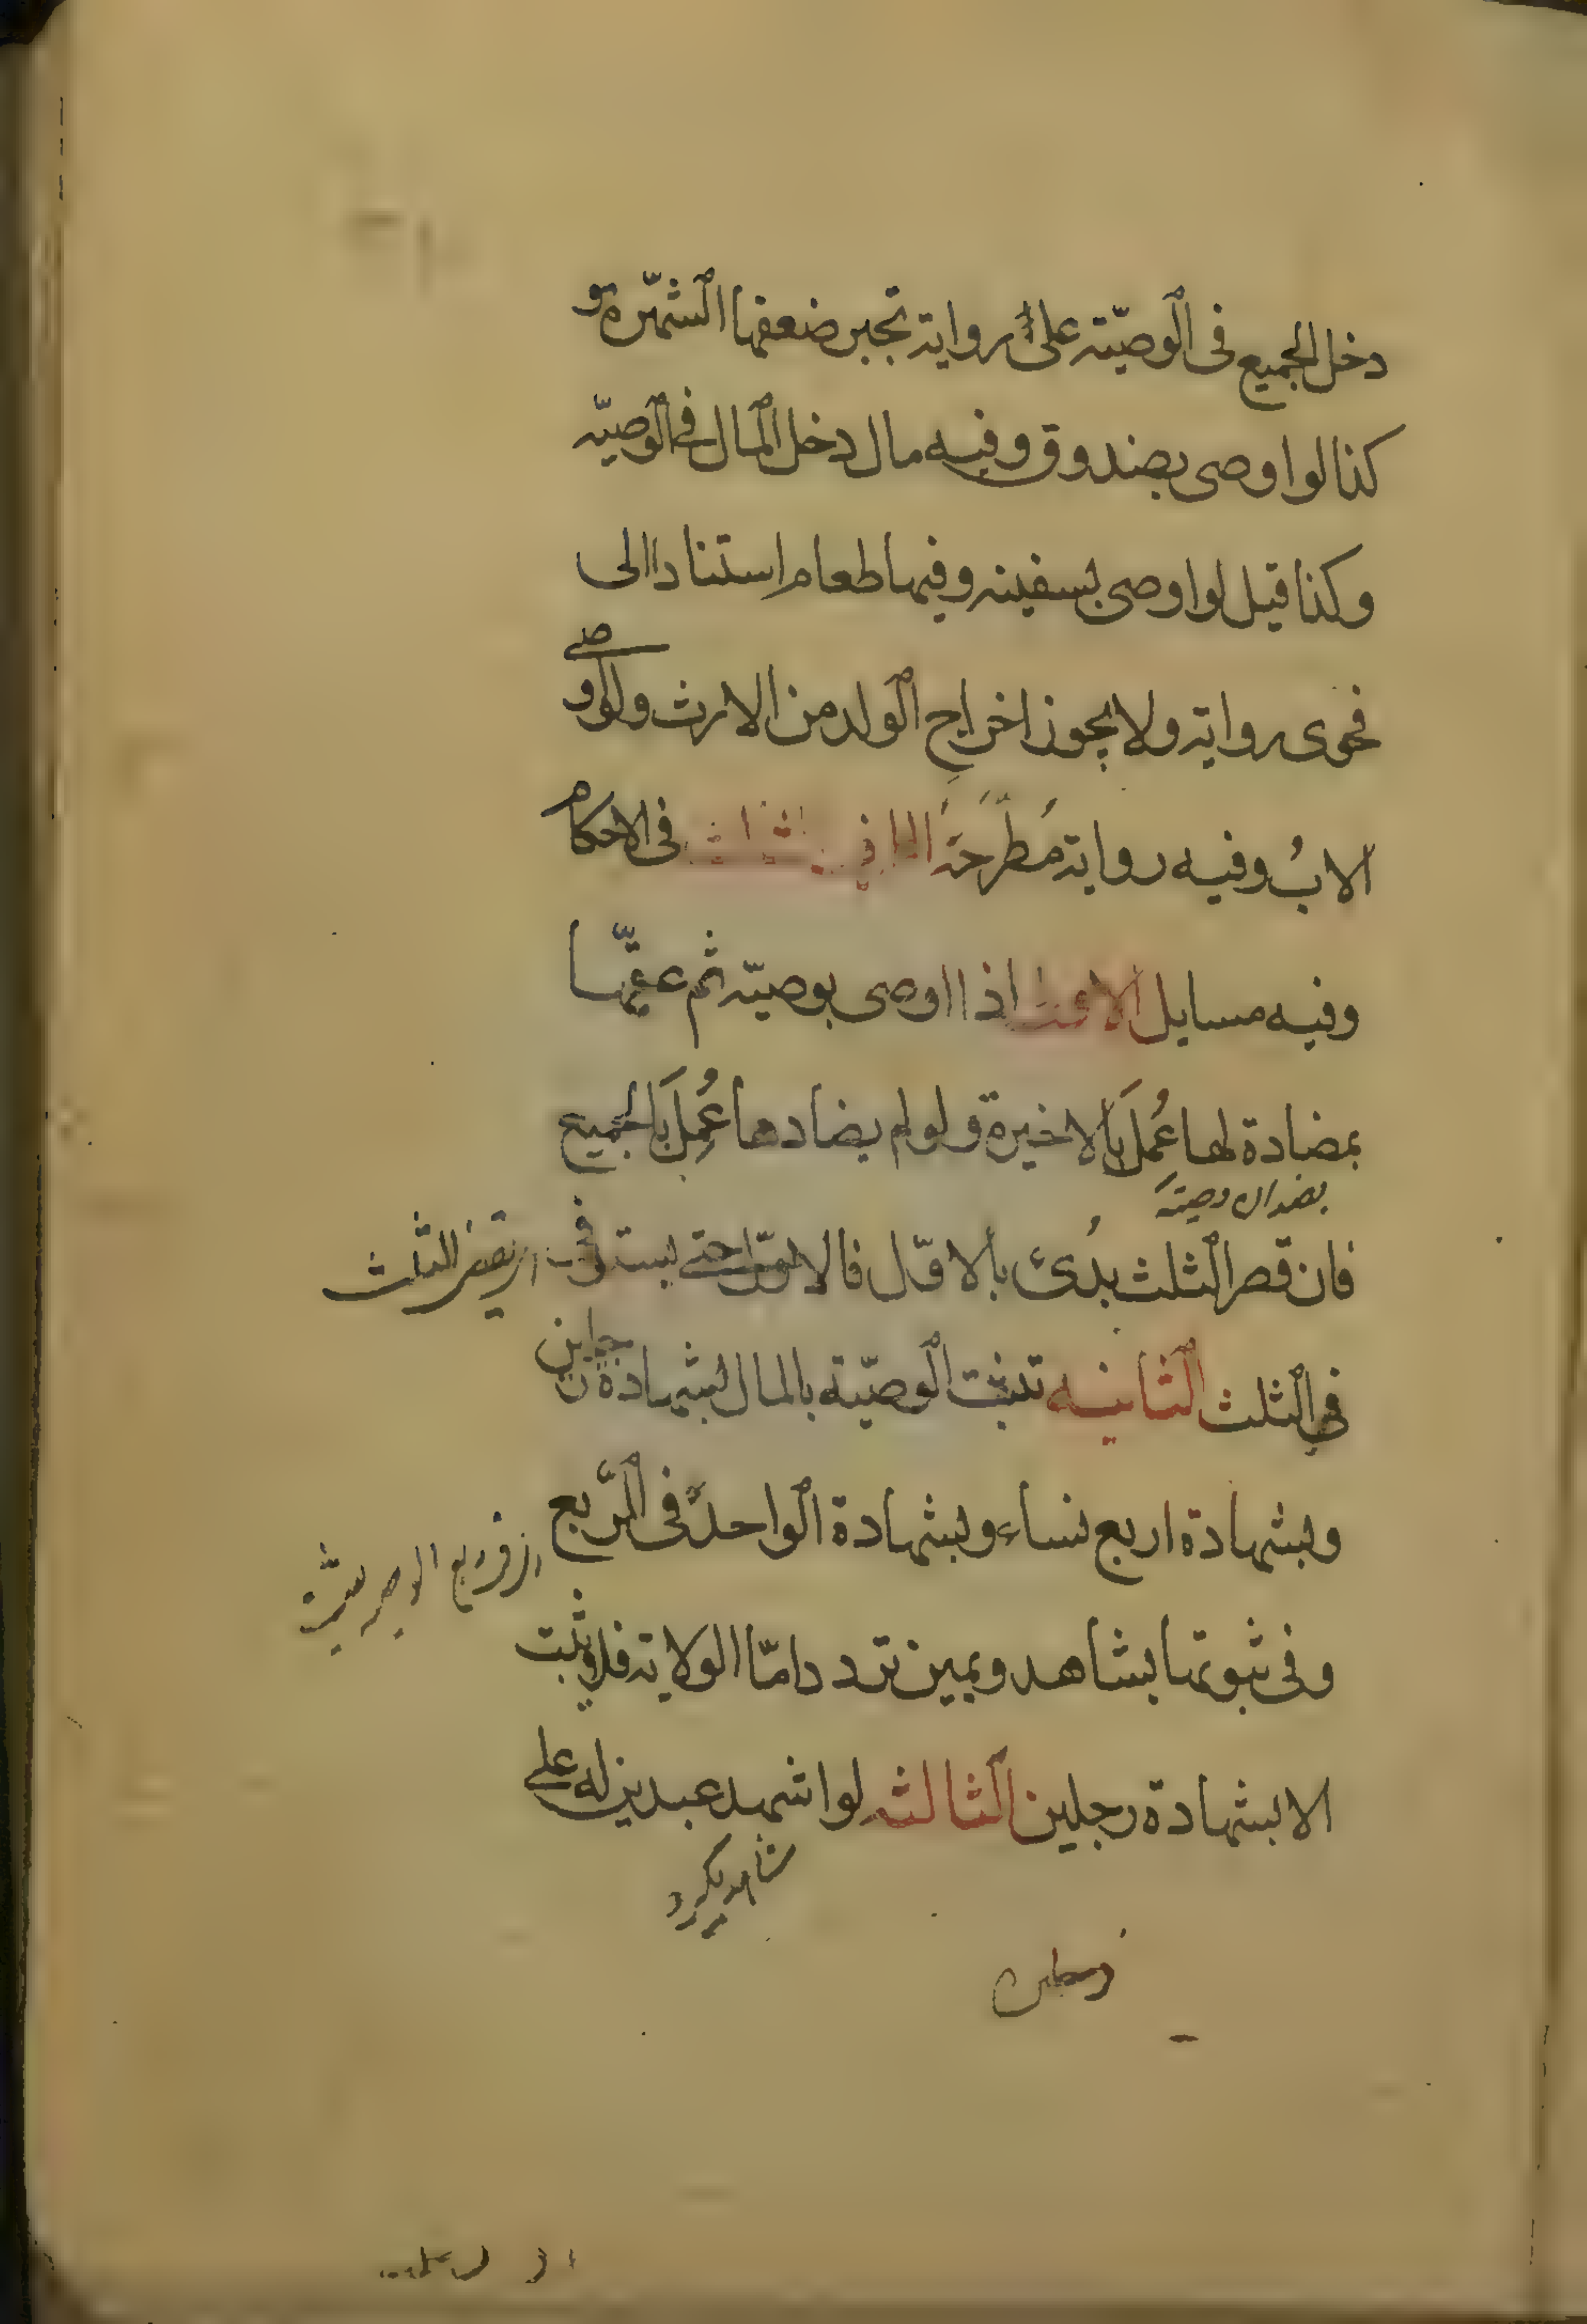 دخل الجميع فى الوصيّة على رواية تجبر ضعفها الشهرة و
كذا لو اوصى بصندوق وفيه مال دخل المال فى الوصيّة
وكذا قيل لو اوصى بسفينة وفيها طعام استنادا الى
فحوى رواية ولا يجوز اخراج الولد من الارث ولو اوصى
الابُ وفيه رواية مُطَّرَحَةٌ فى الاحكام
وفيه مسايل اذا اوصى بوصيّة ثم عقّبها
بمضادة لها عُمِلَ بالاخيرة ولو لم يضادها عُمِلَ بالجميع
فان قصر الثلث بُدئ بالاوّل فالاوّل حتى يستوفى
فى الثلث الثانيه تثبت الوصيّة بالمال بشهادة رجلين
وبشهادة اربع نساء وبشهادة الواحدة فى الرّبع
وفى ثبوتها بشاهد ويمين تردد امّا الولاية فلا يثبت
الا بشهادة رجلين الثالثه لو اشهد عبدين له على